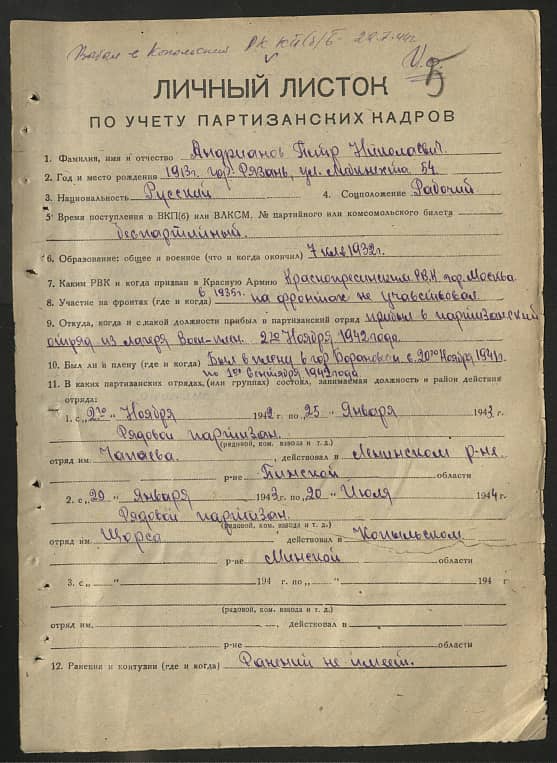 РК КП(б)Б 29.7.44г.
ЛИЧНЫЙ ЛИСТОК
ПО УЧЕТУ ПАРТИЗАНСКИХ КАДРОВ
1. Фамилия, имя и отчество Андрианов Пётр Николаевич.
2. Год и место рождения 1913г. гор. Рязань, ул. 54.
3. Национальность Русский 4. Соцположение Рабочий
5. Время поступления в ВКП(б) или ВЛКСМ, № партийного или комсомольского билета
беспартийный.
6. Образование: общее и военное (что и когда окончил) 7 кл. в 1932г.
7. Каким РВК и когда призван в Красную Армию Краснопресненским Р.В.К. гор. Москва.
в 1935г.
8. Участие на фронтах (где и когда) на фронтах не участвовал
9. Откуда, когда и с какой должности прибыл в партизанский отряд прибыл в партизанский
отряд из лагеря Воен-плен. 2го Ноября 1942 года.
10. Был ли в плену (где и когда) Был в плену в гор. с 20го Ноября 1941г.
по 1ое Сентября 1942 года
11. В каких партизанских отрядах, (или группах) состоял, занимаемая должность и район действия
отряда:
1. с „2го“ Ноября 1942 г. по „25“ Января 1943 г.
Рядовой партизан.
(рядовой, ком. взвода и т. д.)
отряд им. Чапаева. действовал в Ленинском р-не.
р-не Пинской области
2. с „20“ Января 1943 г. по „20“ Июля 1944 г.
Рядовой партизан.
(рядовой, ком. взвода и т. д.)
отряд им. Щорса действовал в Копыльском
р-не Минской области
3. с „ “ 194 г. по „ “ 194 г
(рядовой, ком. взвода и т. д.)
отряд им. действовал в
р-не области
12. Ранения и контузии (где и когда) Ранений не имеет.